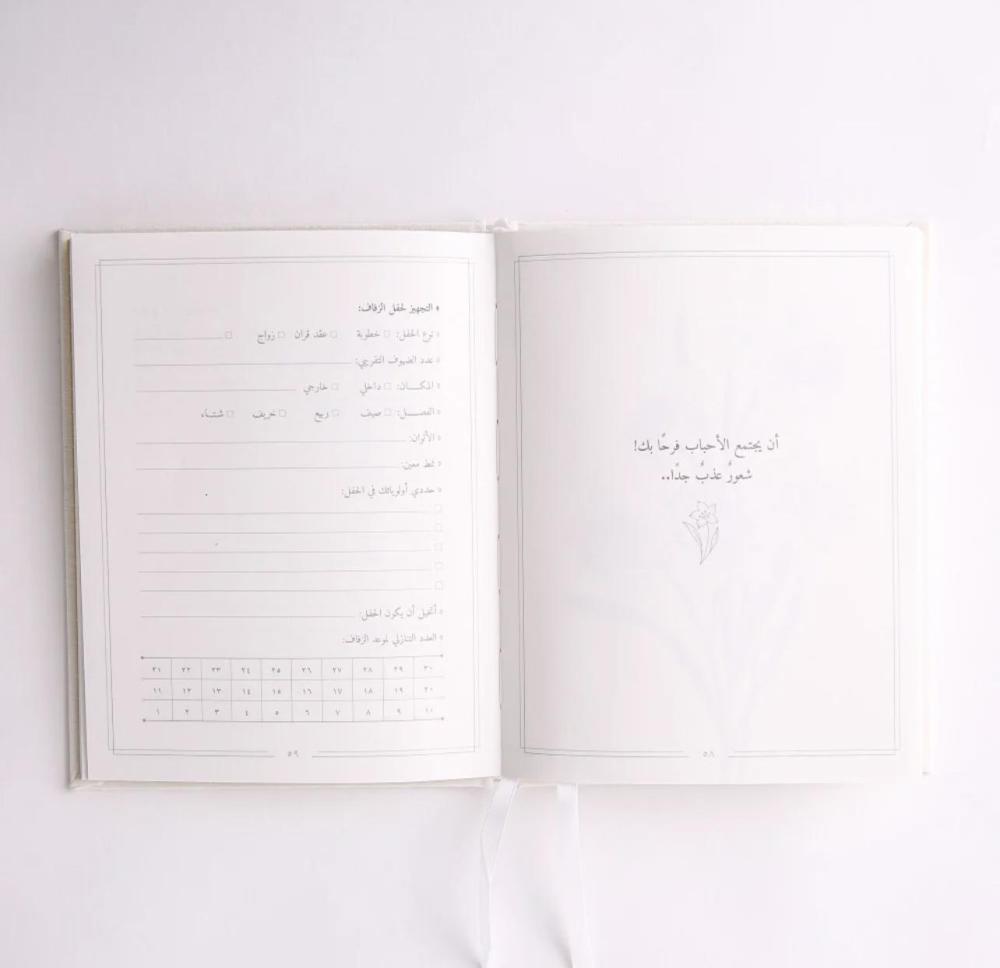 أن يجتمع الأحباب فرحًا بك!
شعورٌ عذبٌ جدًا..
٥٨
التجهيز لحفل الزفاف:
نوع الحفل: □ خطوبة □ عقد قران □ زواج □
عدد الضيوف التقريبي:
المكـــان: □ داخلي □ خارجي
الفصـــل: □ صيف □ ربيع □ خريف □ شتـاء
الألوان:
نمط معين:
حددي أولوياتك في الحفل:
أتخيل أن يكون الحفل:
العدد التنازلي لموعد الزفاف:
٣٠ ٢٩ ٢٨ ٢٧ ٢٦ ٢٥ ٢٤ ٢٣ ٢٢ ٢١
٢٠ ١٩ ١٨ ١٧ ١٦ ١٥ ١٤ ١٣ ١٢ ١١
١٠ ٩ ٨ ٧ ٦ ٥ ٤ ٣ ٢ ١
٥٩